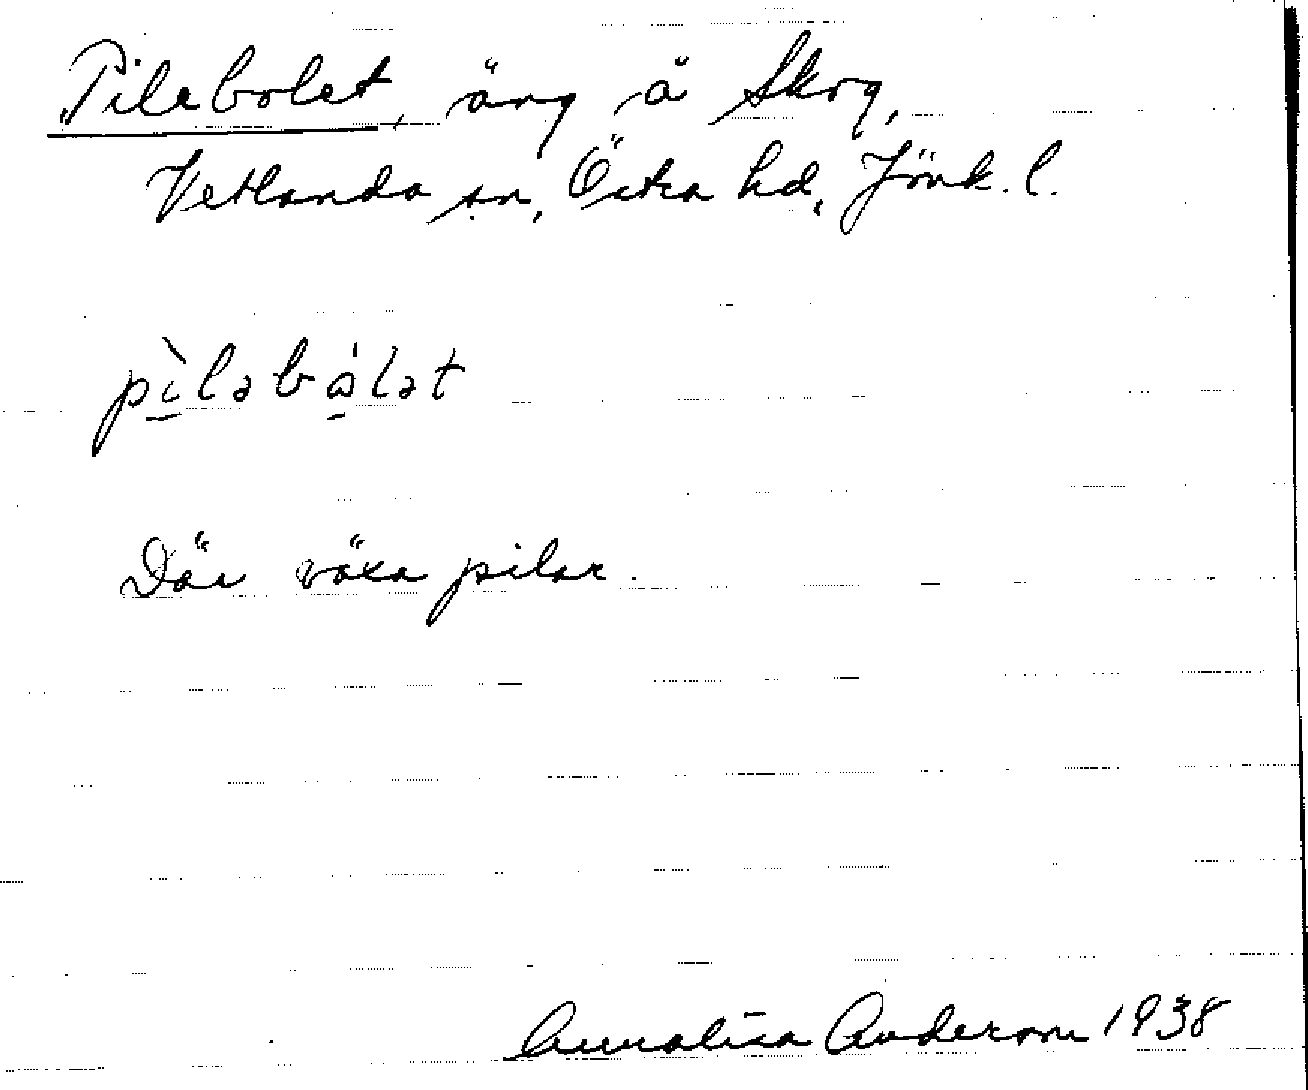 Pilebolet, äng å Skog,
Vetlanda sn, Östra hd, Jönk. l.
pìləbålət
Där växa pilar.
Annalisa Anderson 1938